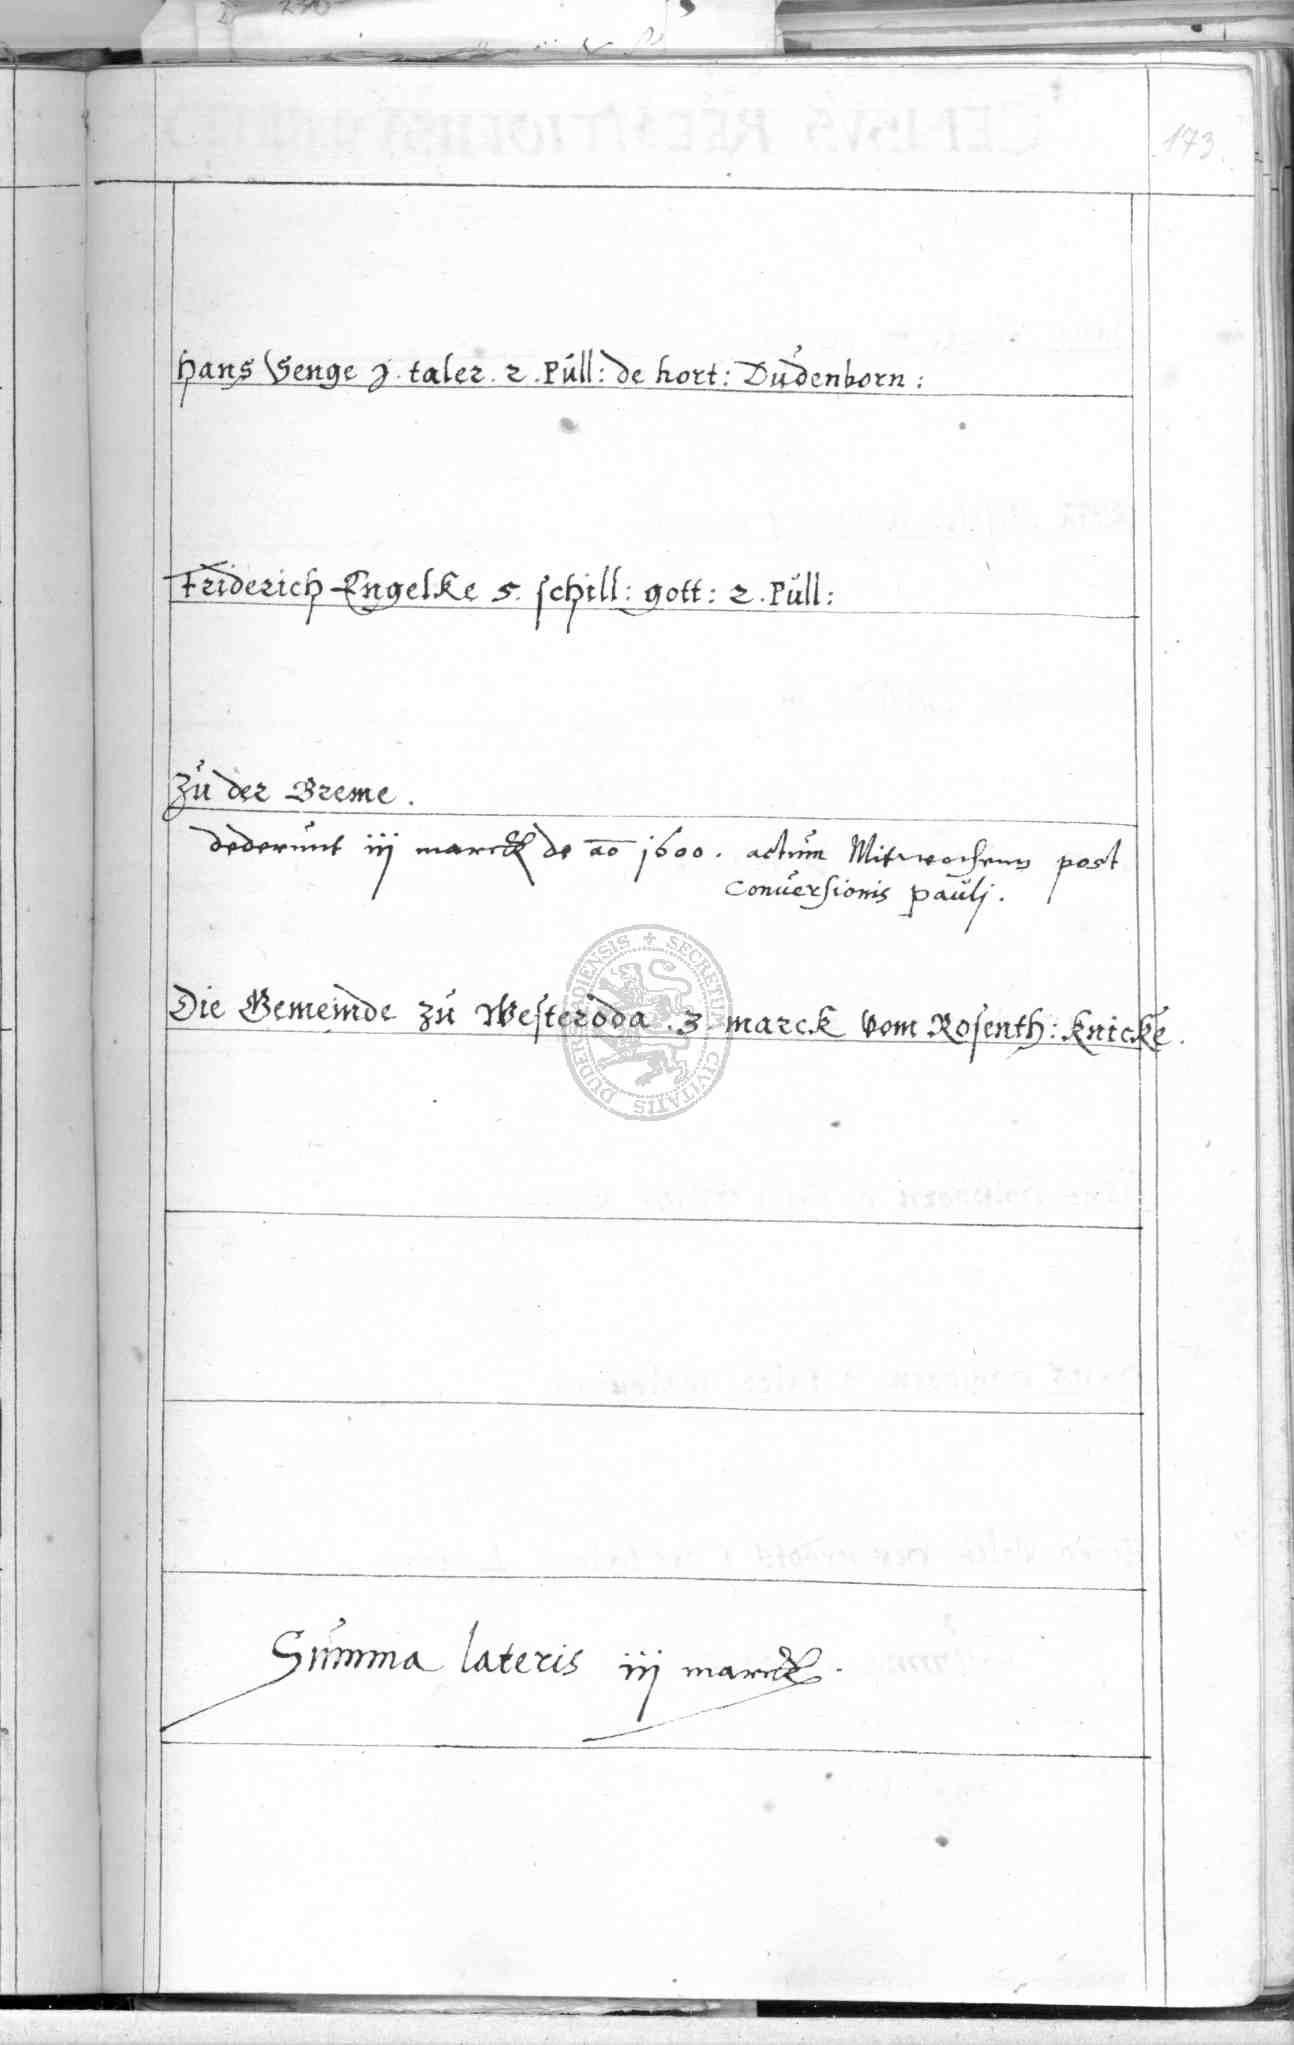 173
Hans Senge j. taler. 2. Pull: de hort: Dudenborn:
Friderich Engelke 5. schill: gott: 2. Pull:
Zu der Breme.
dederunt iij marck de ao 1600. actum Mitwochens post
Conversionis pauli.
Die Gemeinde zu Westeroda. 3. marck vom Rosenth: Knicke.
Summa lateris iij marck.
SECRETUM CIVITATIS DUDERSTADIENSIS